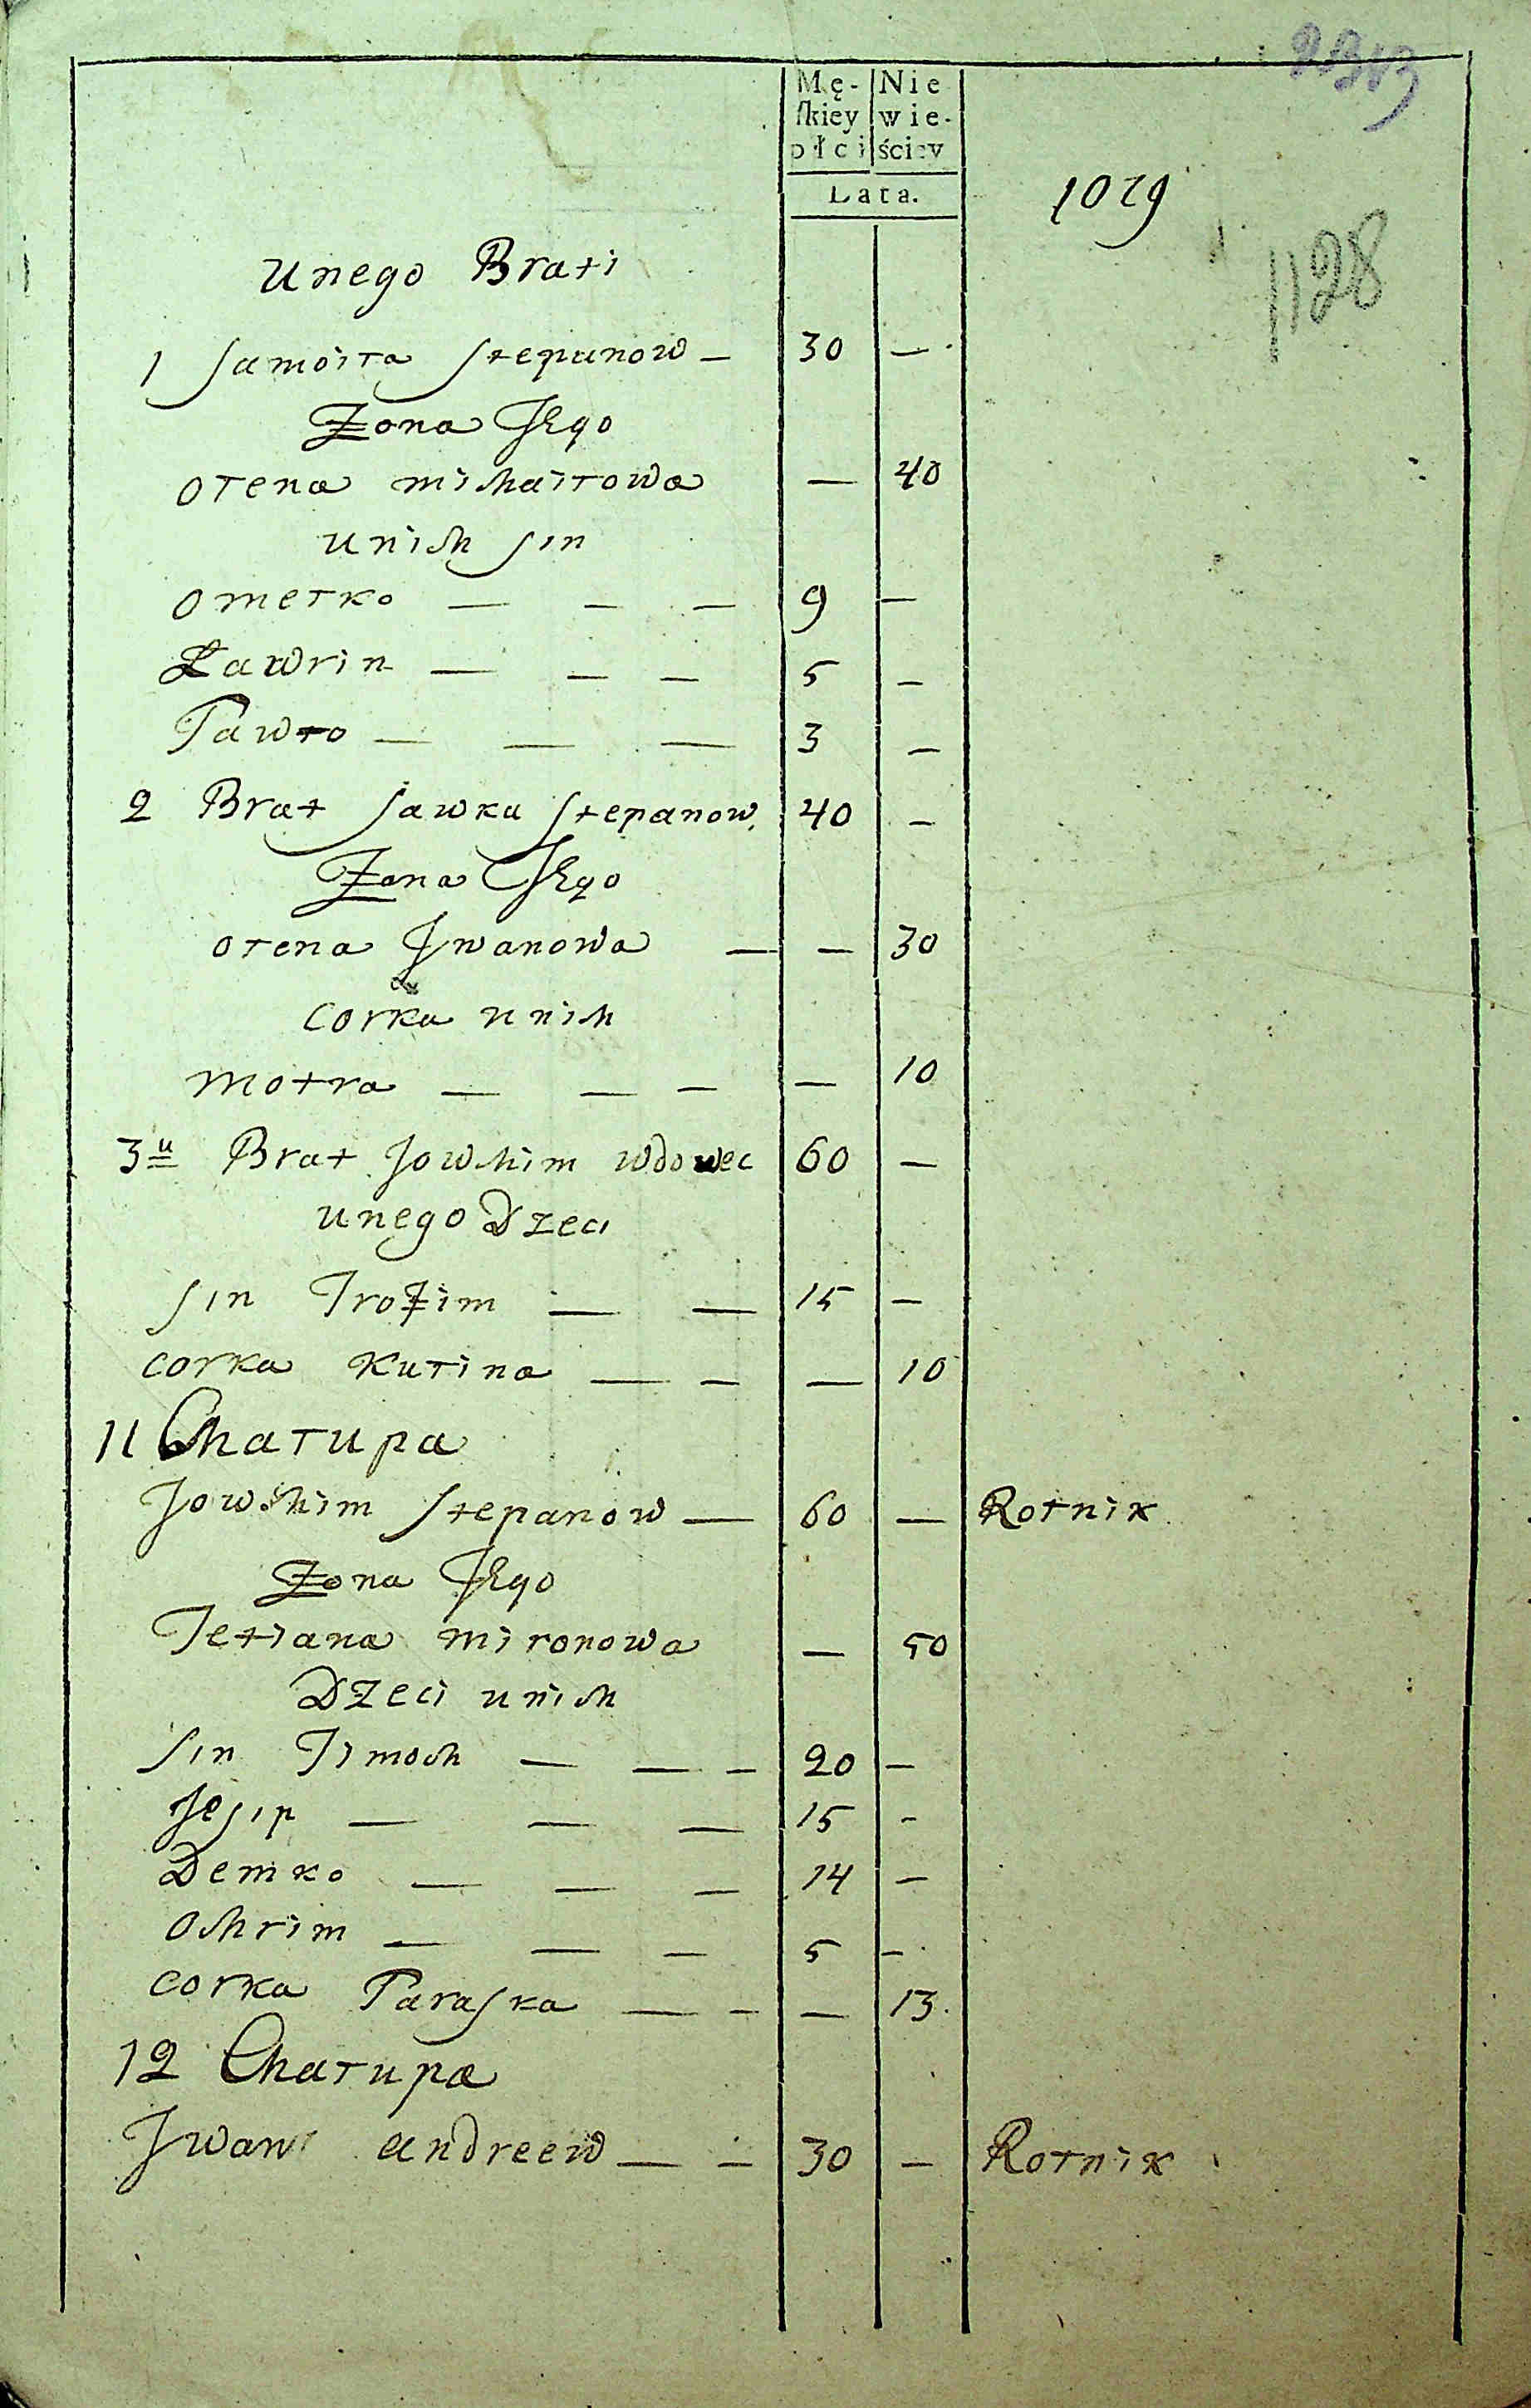 Mę- Nie
ſkiey wie-
płci ściey
Lata.
1029
1128
Unego Brati
1 Samoiła Stepanow — 30 —
Żona Jego
Ołena Michaiłowa — 40
Unich Sin
Omelko — — — 9 —
Ławrin — — — 5 —
Pawło — — — 3 —
2 Brat Sawka Stepanow 40 —
Żona Jego
Ołena Jwanowa — — 30
Corka unich
Motra — — — — 10
3u Brat Jowchim wdowec 60 —
Unego Dzeci
Sin Trofim — — 15 —
Corka Kulina — — — 10
11 Chałupa
Jowchim Stepanow — 60 — Rolnik
Żona Jego
Tetiana Mironowa — 50
Dzeci unich
Sin Timoch — — — 20 —
Jesip — — — 15 -
Demko — — — 14 —
Ochrim — — — 5 —
Corka Paraska — — — 13.
12 Chałupa
Jwan Andreew — — 30 — Rolnik